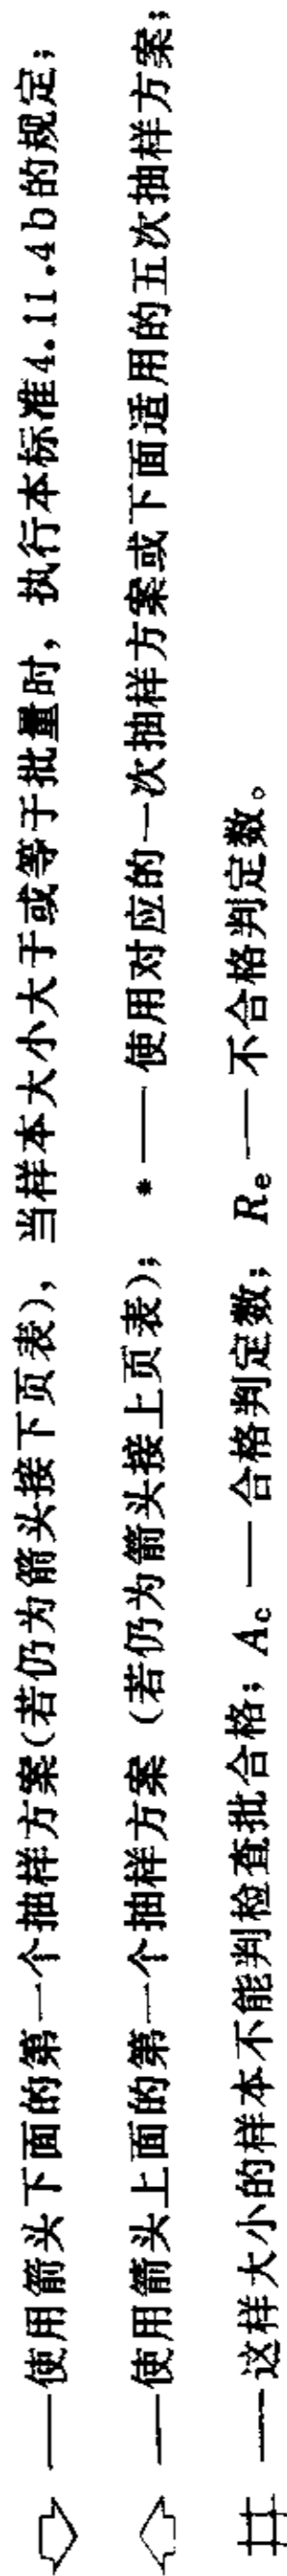 ⇩ ——使用箭头下面的第一个抽样方案(若仍为箭头接下页表)，当样本大小大于或等于批量时，执行本标准4.11.4b的规定；
⇧ ——使用箭头上面的第一个抽样方案（若仍为箭头接上页表）； * ——使用对应的一次抽样方案或下面适用的五次抽样方案；
# ——这样大小的样本不能判检查批合格；Ac ——合格判定数；Re ——不合格判定数。